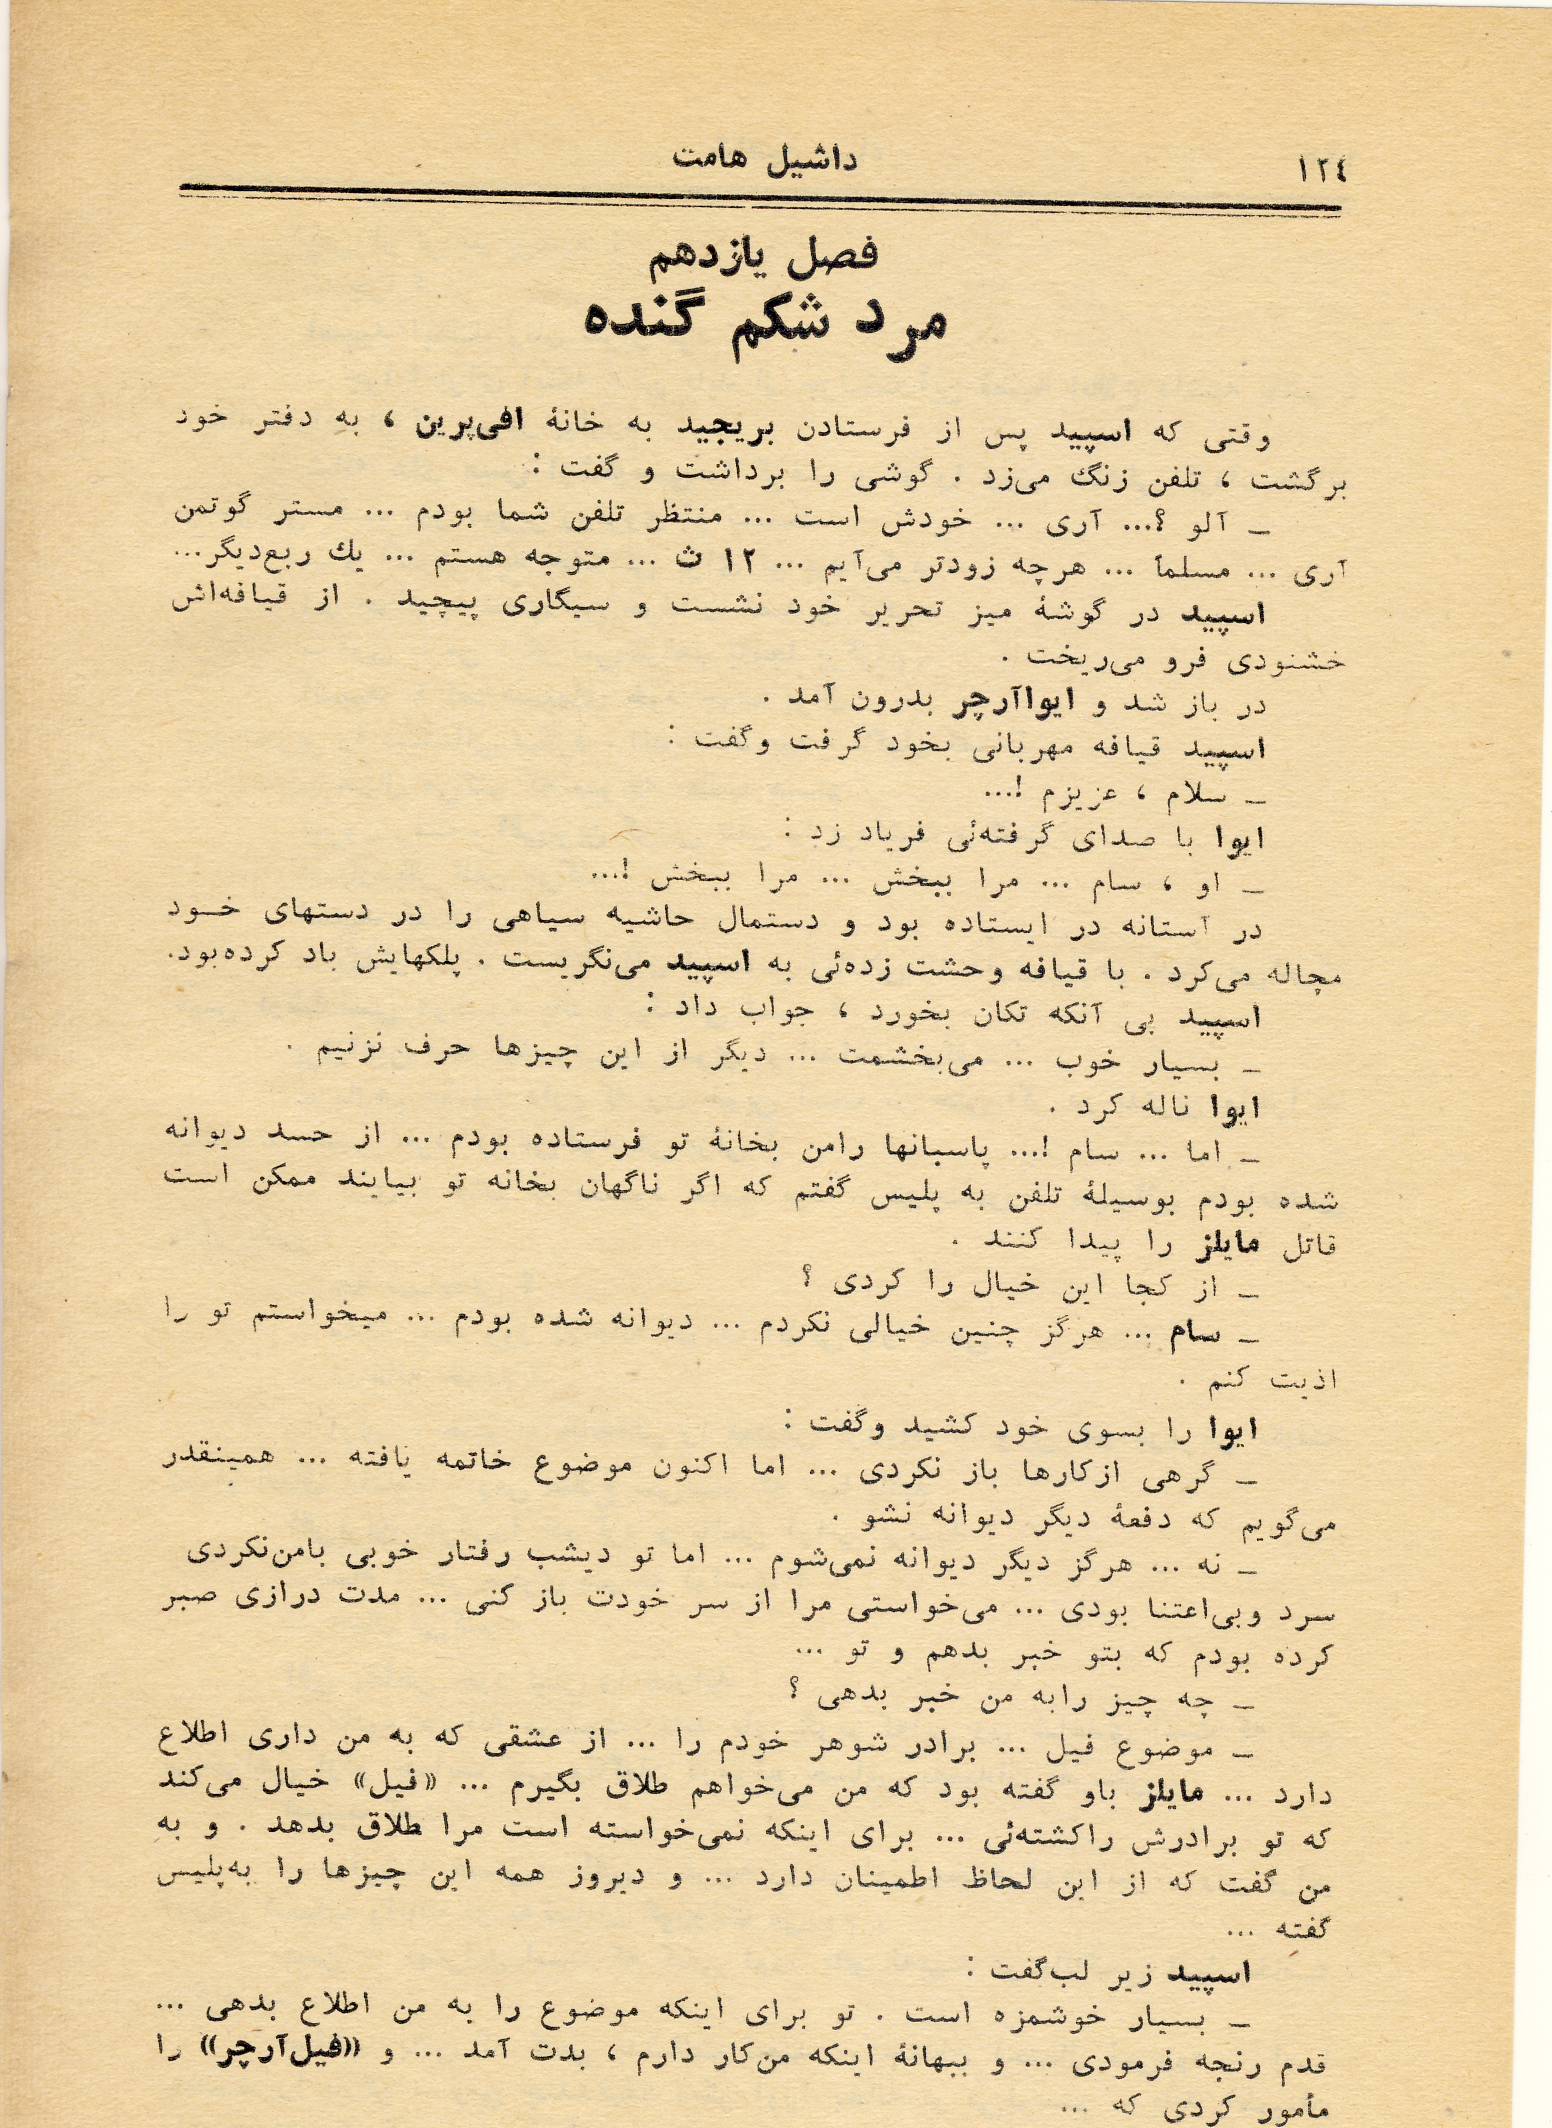 ١٢٤
داشیل هامت
فصل یازدهم
مرد شکم گنده
وقتی که اسپید پس از فرستادن بریجید به خانهٔ افی‌پرین ، به دفتر خود
برگشت ، تلفن زنگ می‌زد . گوشی را برداشت و گفت :
ـ آلو ؟... آری ... خودش است ... منتظر تلفن شما بودم ... مستر گوتمن
آری ... مسلماً ... هرچه زودتر می‌آیم ... ١٢ ث ... متوجه هستم ... یك ربع‌دیگر...
اسپید در گوشهٔ میز تحریر خود نشست و سیگاری پیچید . از قیافه‌اش
خشنودی فرو می‌ریخت .
در باز شد و ایواآرچر بدرون آمد .
اسپید قیافه مهربانی بخود گرفت وگفت :
ـ سلام ، عزیزم !...
ایوا با صدای گرفته‌ئی فریاد زد :
ـ او ، سام ... مرا ببخش ... مرا ببخش !...
در آستانه در ایستاده بود و دستمال حاشیه سیاهی را در دستهای خـود
مچاله می‌کرد . با قیافه وحشت زده‌ئی به اسپید می‌نگریست . پلکهایش باد کرده‌بود.
اسپید بی آنکه تکان بخورد ، جواب داد :
ـ بسیار خوب ... می‌بخشمت ... دیگر از این چیزها حرف نزنیم .
ایوا ناله کرد .
ـ اما ... سام !... پاسبانها رامن بخانهٔ تو فرستاده بودم ... از حسد دیوانه
شده بودم بوسیلهٔ تلفن به پلیس گفتم که اگر ناگهان بخانه تو بیایند ممکن است
قاتل مایلز را پیدا کنند .
ـ از کجا این خیال را کردی ؟
ـ سام ... هرگز چنین خیالی نکردم ... دیوانه شده بودم ... میخواستم تو را
اذیت کنم .
ایوا را بسوی خود کشید وگفت :
ـ گرهی ازکارها باز نکردی ... اما اکنون موضوع خاتمه یافته ... همینقدر
می‌گویم که دفعهٔ دیگر دیوانه نشو .
ـ نه ... هرگز دیگر دیوانه نمی‌شوم ... اما تو دیشب رفتار خوبی بامن‌نکردی
سرد وبی‌اعتنا بودی ... می‌خواستی مرا از سر خودت باز کنی ... مدت درازی صبر
کرده بودم که بتو خبر بدهم و تو ...
ـ چه چیز رابه من خبر بدهی ؟
ـ موضوع فیل ... برادر شوهر خودم را ... از عشقی که به من داری اطلاع
دارد ... مایلز باو گفته بود که من می‌خواهم طلاق بگیرم ... «فیل» خیال می‌کند
که تو برادرش راکشته‌ئی ... برای اینکه نمی‌خواسته است مرا طلاق بدهد . و به
من گفت که از این لحاظ اطمینان دارد ... و دیروز همه این چیزها را به‌پلیس
گفته ...
اسپید زیر لب‌گفت :
ـ بسیار خوشمزه است . تو برای اینکه موضوع را به من اطلاع بدهی ...
قدم رنجه فرمودی ... و ببهانهٔ اینکه من‌کار دارم ، بدت آمد ... و «فیل‌آرچر» را
مأمور کردی که ...